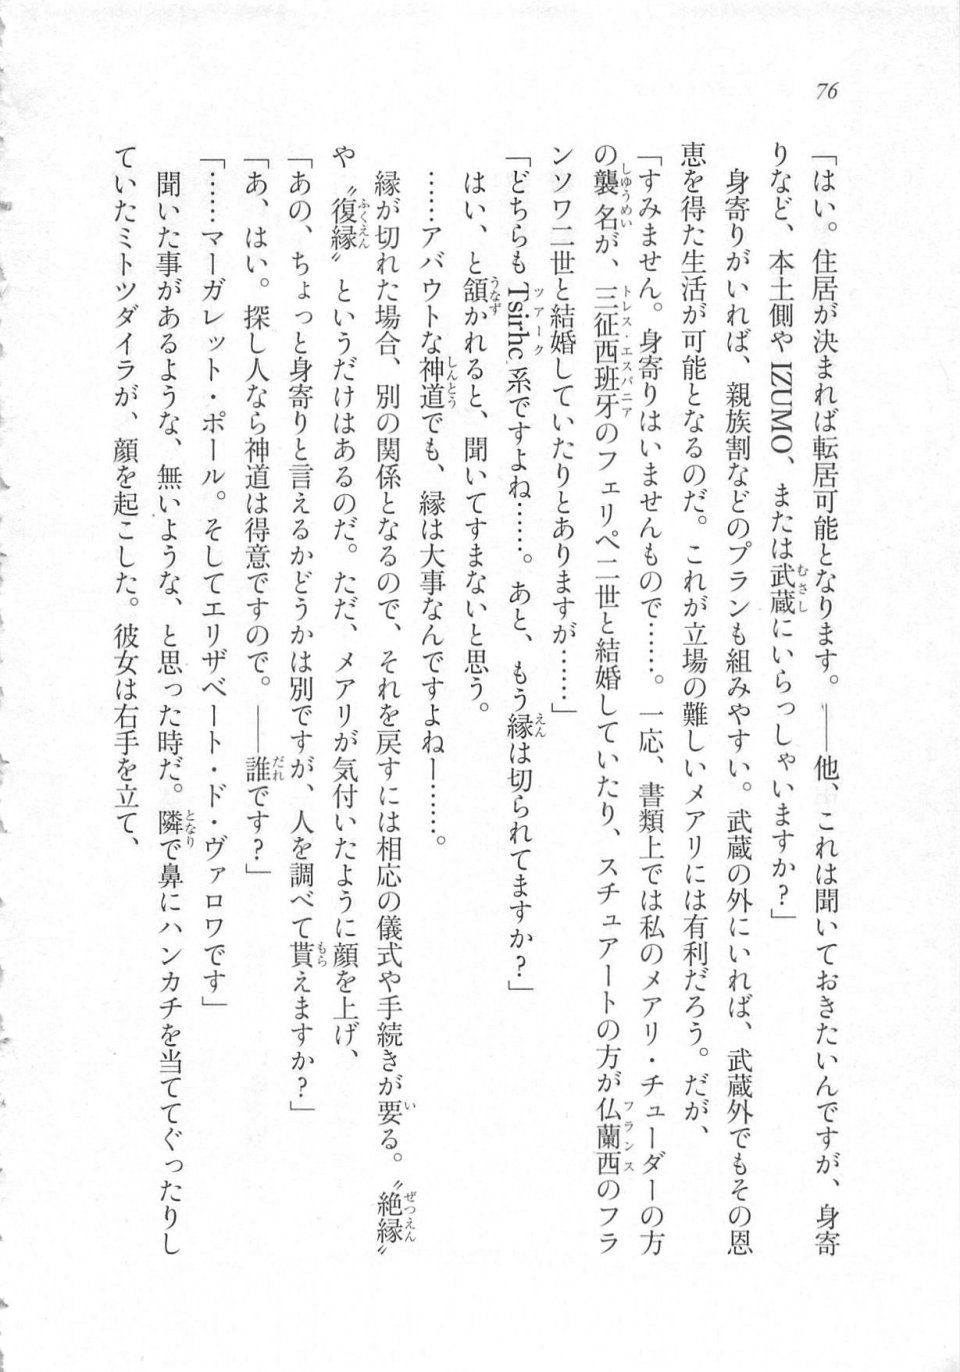 76
「はい。住居が決まれば転居可能となります。――他、これは聞いておきたいんですが、身寄
りなど、本土側やIZUMO、または武蔵にいらっしゃいますか？」
身寄りがいれば、親族割などのプランも組みやすい。武蔵の外にいれば、武蔵外でもその恩
恵を得た生活が可能となるのだ。これが立場の難しいメアリには有利だろう。だが、
「すみません。身寄りはいませんもので……。一応、書類上では私のメアリ・チューダーの方
の襲名が、三征西班牙のフェリペ二世と結婚していたり、スチュアートの方が仏蘭西のフラ
ンソワ二世と結婚していたりとありますが……」
「どちらもTsirhc系ですよね……。あと、もう縁は切られてますか？」
はい、と頷かれると、聞いてすまないと思う。
……アバウトな神道でも、縁は大事なんですよねー……。
縁が切れた場合、別の関係となるので、それを戻すには相応の儀式や手続きが要る。〝絶縁〟
や〝復縁〟というだけはあるのだ。ただ、メアリが気付いたように顔を上げ、
「あの、ちょっと身寄りと言えるかどうかは別ですが、人を調べて貰えますか？」
「あ、はい。探し人なら神道は得意ですので。――誰です？」
「……マーガレット・ポール。そしてエリザベート・ド・ヴァロワです」
聞いた事があるような、無いような、と思った時だ。隣で鼻にハンカチを当ててぐったりし
ていたミトツダイラが、顔を起こした。彼女は右手を立て、